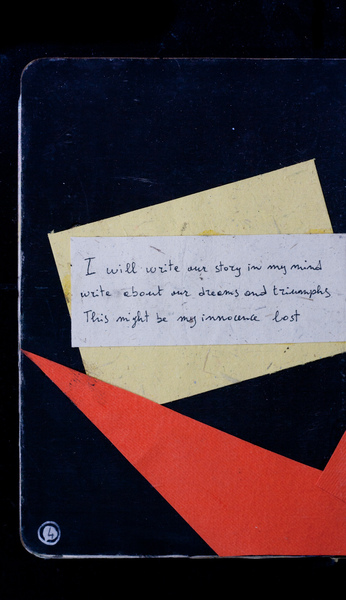 I will write our story in my mind
write about our dreams and triumphs
This might be my innocence lost